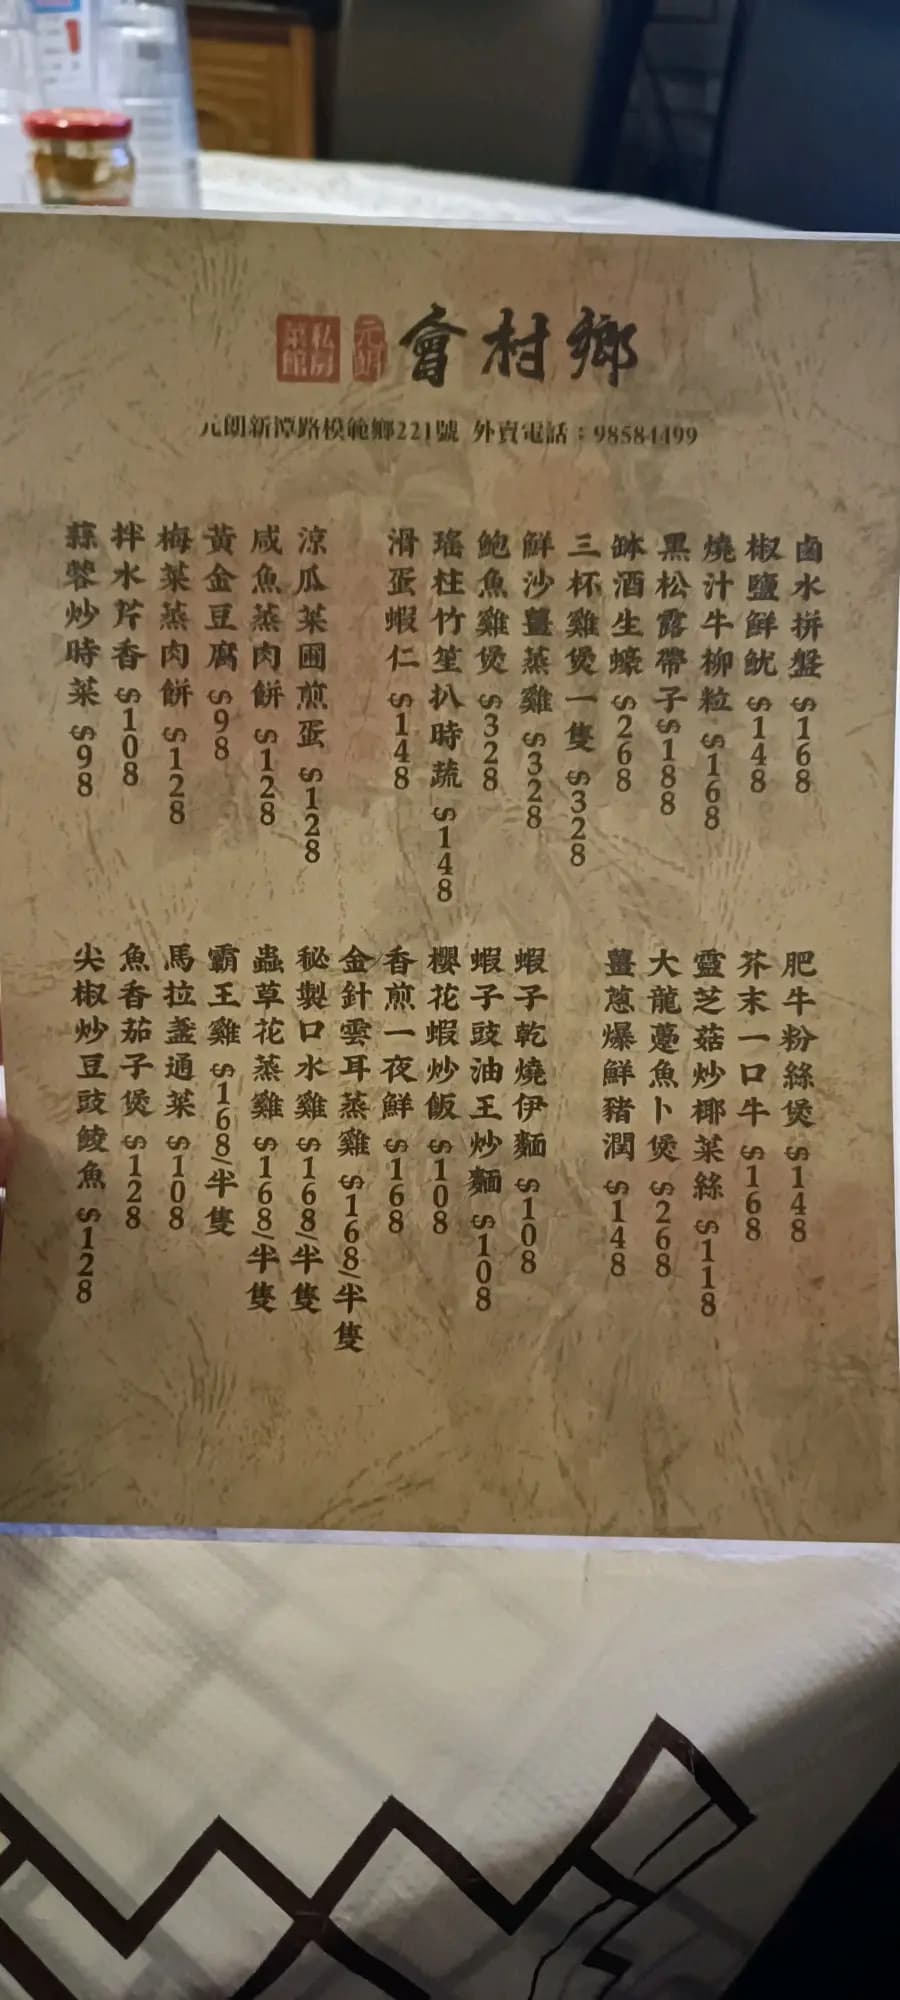 鄉村會
元朗
私房菜館
元朗新潭路模範鄉221號 外賣電話：98584499
鹵水拼盤 $168
椒鹽鮮魷 $148
燒汁牛柳粒 $168
黑松露帶子$188
缽酒生蠔 $268
三杯雞煲一隻 $328
鮮沙薑蒸雞 $328
鮑魚雞煲 $328
瑤柱竹笙扒時蔬 $148
滑蛋蝦仁 $148
涼瓜菜圃煎蛋 $128
咸魚蒸肉餅 $128
黃金豆腐 $98
梅菜蒸肉餅 $128
拌水芹香 $108
蒜蓉炒時菜 $98
肥牛粉絲煲 $148
芥末一口牛 $168
靈芝菇炒椰菜絲 $118
大龍躉魚卜煲 $268
薑蔥爆鮮豬潤 $148
蝦子乾燒伊麵 $108
蝦子豉油王炒麵 $108
櫻花蝦炒飯 $108
香煎一夜鮮 $168
金針雲耳蒸雞 $168/半隻
秘製口水雞 $168/半隻
蟲草花蒸雞 $168/半隻
霸王雞 $168/半隻
馬拉盞通菜 $108
魚香茄子煲 $128
尖椒炒豆豉鯪魚 $128